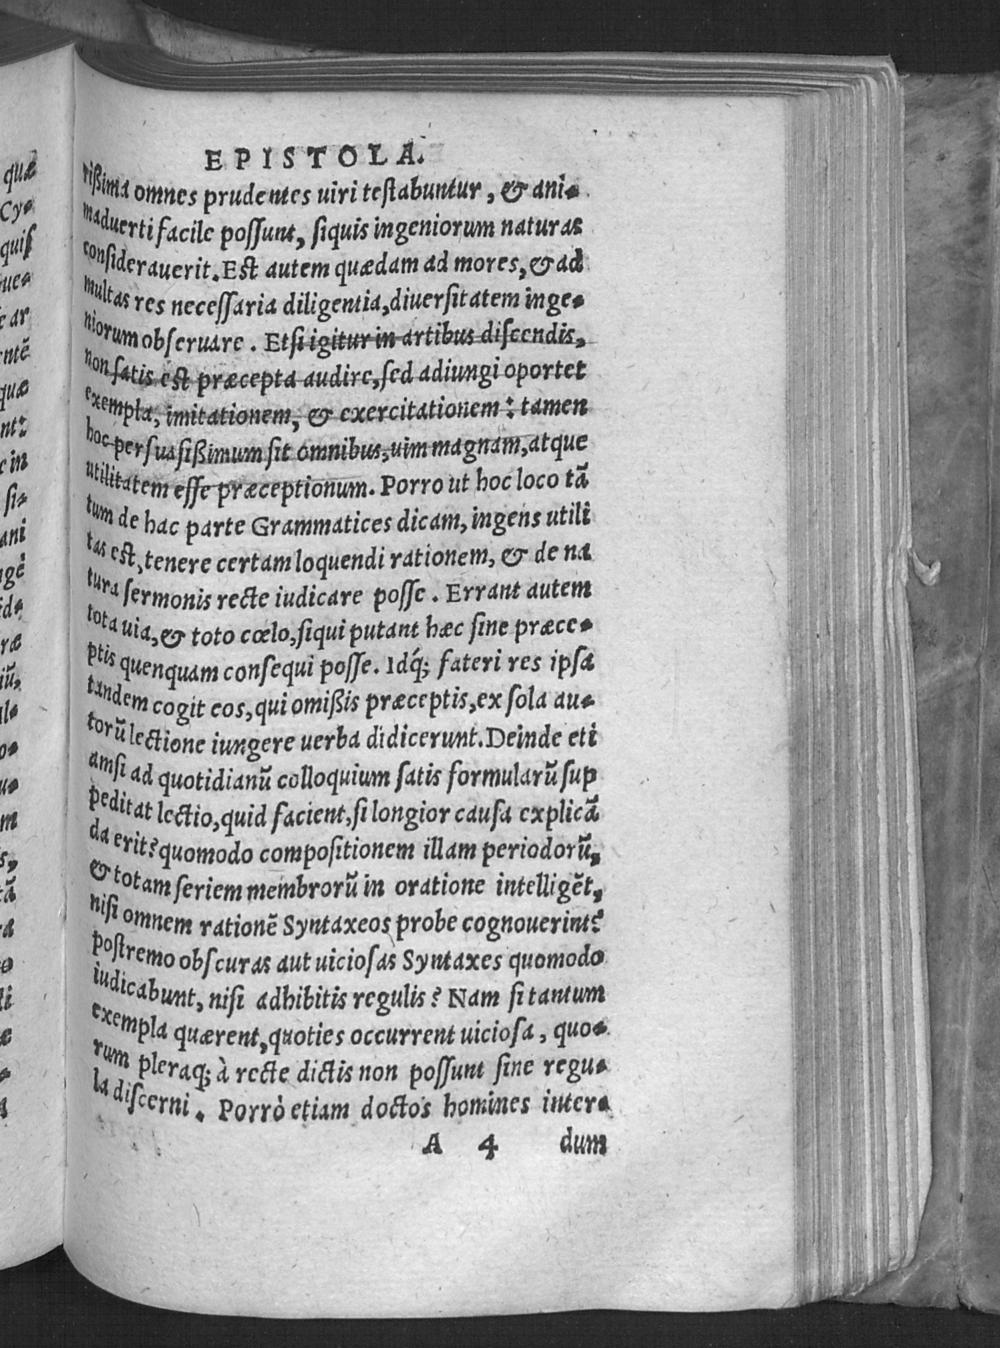 EPISTOLA.
rißima omnes prudentes uiri testabuntur, & ani-
maduerti facile possunt, siquis ingeniorum naturas
considerauerit. Est autem quædam ad mores, & ad
multas res necessaria diligentia, diuersitatem inge-
niorum obseruare. Etsi igitur in artibus discendis,
non satis est præcepta audire, sed adiungi oportet
exempla, imitationem, & exercitationem: tamen
hoc persuasißimum sit omnibus, uim magnam, atque
utilitatem esse præceptionum. Porro ut hoc loco tã
tum de hac parte Grammatices dicam, ingens utili
tas est, tenere certam loquendi rationem, & de na
tura sermonis recte iudicare posse. Errant autem
tota uia, & toto cœlo, siqui putant hæc sine præce-
ptis quenquam consequi posse. Idq́; fateri res ipsa
tandem cogit eos, qui omißis præceptis, ex sola au-
torũ lectione iungere uerba didicerunt. Deinde eti
amsi ad quotidianũ colloquium satis formularũ sup
peditat lectio, quid facient, si longior causa explicã
da erit? quomodo compositionem illam periodorũ,
& totam seriem membrorũ in oratione intelligẽt,
nisi omnem rationẽ Syntaxeos probe cognouerint?
postremo obscuras aut uiciosas Syntaxes quomodo
iudicabunt, nisi adhibitis regulis? Nam si tantum
exempla quærent, quoties occurrent uiciosa, quo-
rum pleraq; à recte dictis non possunt sine regu-
la discerni. Porrò etiam doctos homines inter-
A 4 dum
quæ
Cy-
quis
ue-
e ar
ntẽ
quæ
nt:
e in
si-
ani